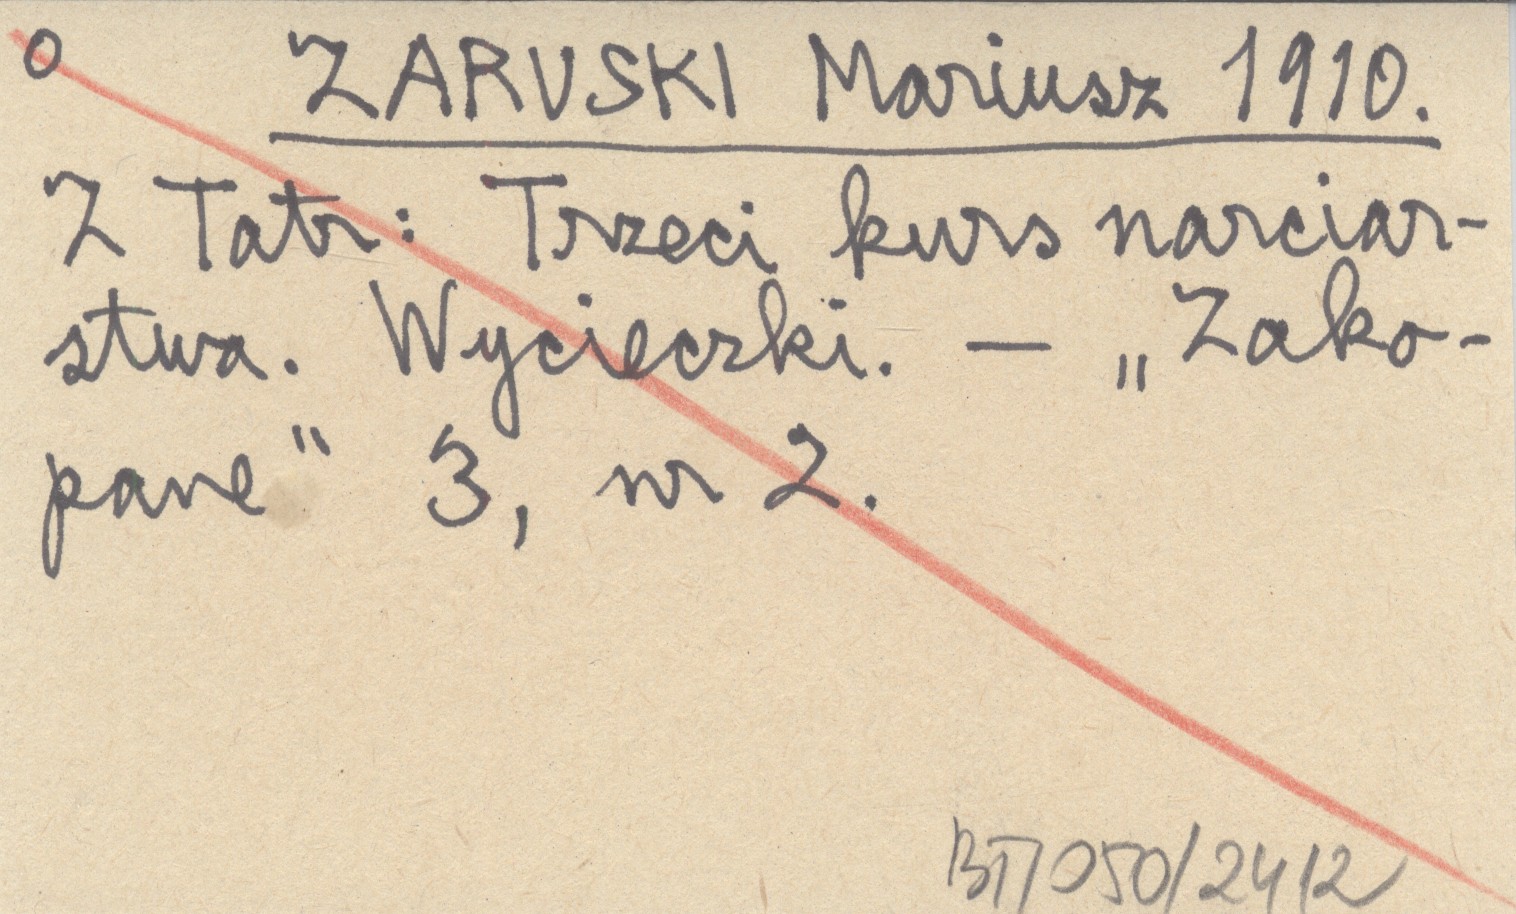 o ZARUSKI Mariusz 1910.
Z Tatr: Trzeci kurs narciar-
stwa. Wycieczki. — „Zako-
pane" 3, nr 2.
BT/050/2412